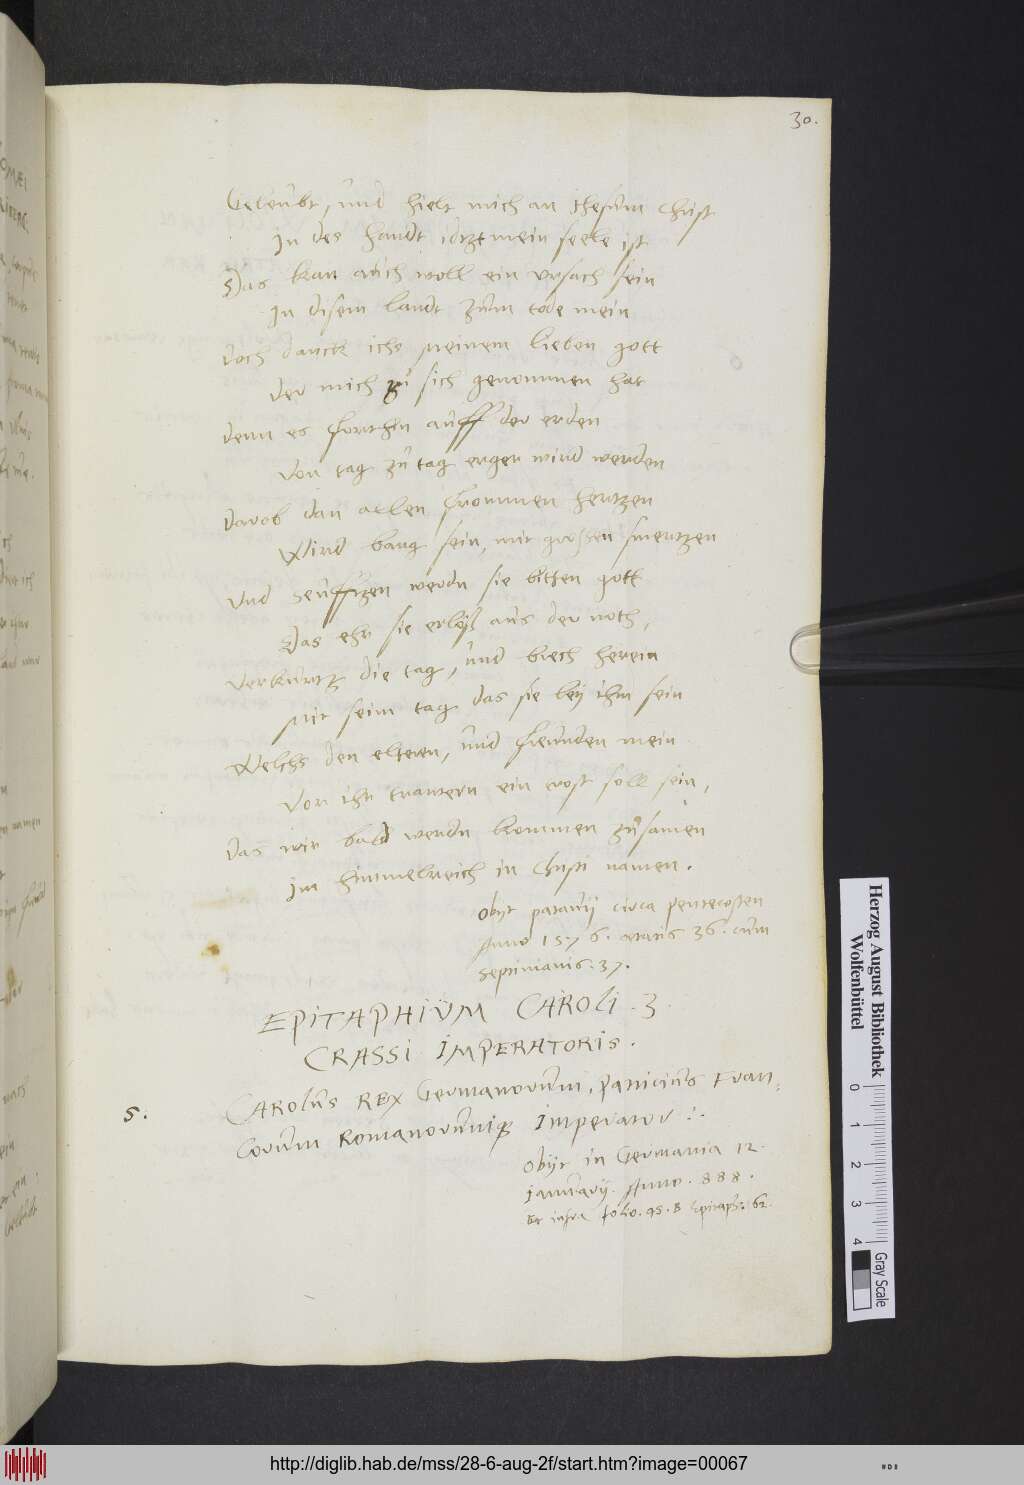 30.
Geleubt, und hielt mich an Jhesum Christ
In des handt idtzt mein seele ist
Das kan auch woll ein ursach sein
In disem landt zum tode mein
Doch danck ichs meinem lieben gott
Der mich zu sich genommen hat
Denn es forthin auff der erden
Von tag zu tag erger wird werden
Darob dan allen frommen hertzen
Wird bang sein, mit grossen smertzen
Und seufftzen werdn sie bitten gott
Das ehr sie erlöß aus der noth,
Verkurtz die tag, und brech herein
Mit seim tag das sie bey ihm sein
Welchs den eltern, und freunden mein
Vor ihr trawern ein trost soll sein,
Das wir bald werdn kommen zusamen
Im himmelreich in Christi namen.
Obijt patavij circa pentecosten
Anno 1576. aetatis 36. cum
septimanis. 37.
EPITAPHIUM CAROLI. 3
CRASSI IMPERATORIS.
5.
CAROLUS REX Germanorum, patricius Fran=
corum Romanorumque Imperator :.
Obijt in Germania 12.
januarij. Anno. 888.
Et infra folio. 95. B Epitaph: 62.
Herzog August Bibliothek
Wolfenbüttel
0 1 2 3 4
Gray Scale
http://diglib.hab.de/mss/28-6-aug-2f/start.htm?image=00067